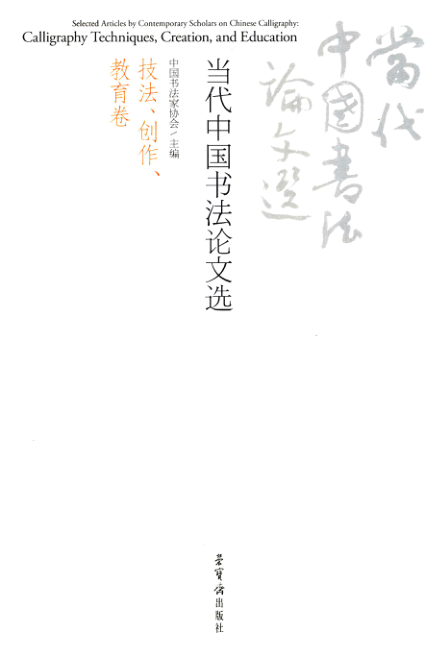 Selected Articles by Contemporary Scholars on Chinese Calligraphy:
Calligraphy Techniques, Creation, and Education
當代
中國書法
論文選
当代中国书法论文选
中国书法家协会/主编
技法、创作、
教育卷
荣宝斋出版社